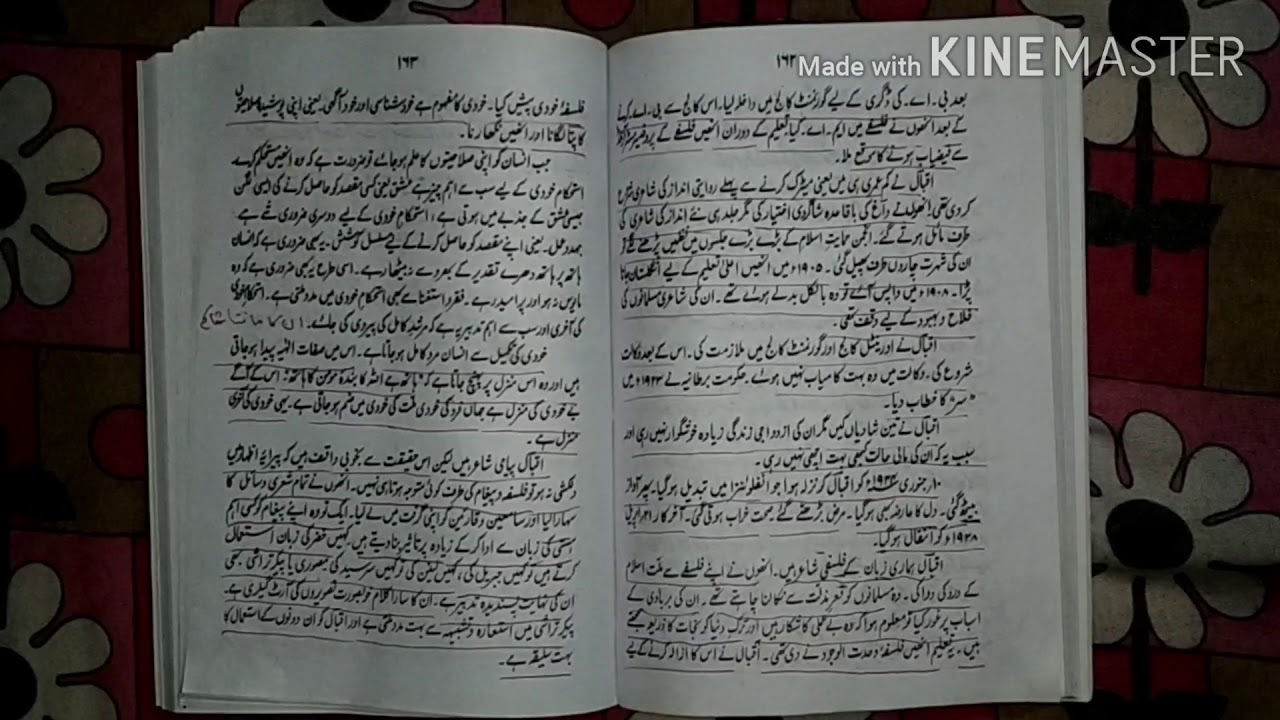 Made with KINEMASTER
۱۶۲
بعد بی۔اے۔ کی ڈگری کے لیے گورنمنٹ کالج میں داخلہ لیا۔ اس کالج سے بی۔اے۔ کرنے
کے بعد انھوں نے فلسفے میں ایم۔اے۔ کیا تعلیم کے دوران انھیں فلسفے کے پروفیسر مسٹر آرنلڈ
سے فیضیاب ہونے کا موقع ملا۔
اقبال نے کم عمری ہی میں یعنی میٹرک کرنے سے پہلے روایتی انداز کی شاعری شروع
کر دی تھی۔ انھوں نے داغ کی باقاعدہ شاگردی اختیار کی مگر جلد ہی نئے انداز کی شاعری کی
طرف مائل ہوتے گئے۔ انجمن حمایتِ اسلام کے بڑے بڑے جلسوں میں نظمیں پڑھنے لگے تو
ان کی شہرت چاروں طرف پھیل گئی۔ ۱۹۰۵ء میں انھیں اعلیٰ تعلیم کے لیے انگلستان جانا
پڑا۔ ۱۹۰۸ء میں واپس آئے تو وہ بالکل بدلے ہوئے تھے۔ ان کی شاعری مسلمانوں کی
فلاح و بہبود کے لیے وقف تھی۔
اقبال نے اورینٹل کالج اور گورنمنٹ کالج میں ملازمت کی۔ اس کے بعد وکالت
شروع کی۔ وکالت میں وہ بہت کامیاب نہیں ہوئے۔ حکومت برطانیہ نے ۱۹۲۳ء میں
"سر" کا خطاب دیا۔
اقبال نے تین شادیاں کیں مگر ان کی ازدواجی زندگی زیادہ خوشگوار نہیں رہی اور
سبب یہ کہ ان کی مالی حالت کبھی بہت اچھی نہیں رہی۔
۱۰؍جنوری ۱۹۳۴ء کو اقبال کو نزلہ ہوا جو انفلوئنزا میں تبدیل ہو گیا۔ پھر آواز
بیٹھ گئی۔ دل کا عارضہ بھی ہو گیا۔ مرض بڑھتے گئے۔ صحت خراب ہوتی گئی۔ آخر کار ۲۱؍اپریل
۱۹۳۸ء کو انتقال ہو گیا۔
اقبال ہماری زبان کے فلسفی شاعر ہیں۔ انھوں نے اپنے فلسفے سے ملت اسلام
کے درد کی دوا کی۔ وہ مسلمانوں کو قعرِ مذلت سے نکالنا چاہتے تھے۔ ان کی بربادی کے
اسباب پر غور کیا تو معلوم ہوا کہ وہ بے عملی کا شکار ہیں اور ترکِ دنیا کو نجات کا ذریعہ سمجھتے
ہیں۔ یہ تعلیم انھیں فلسفۂ وحدت الوجود نے دی تھی۔ اقبال نے اس کا ازالہ کرنے کے لیے
۱۶۳
فلسفۂ خودی پیش کیا۔ خودی کا مفہوم ہے خود شناسی اور خود آگہی۔ یعنی اپنی پوشیدہ صلاحیتوں
کا پتا لگانا اور انھیں نکھارنا۔
جب انسان کو اپنی صلاحیتوں کا علم ہو جائے تو ضرورت ہے کہ وہ انھیں مستحکم کرے
استحکامِ خودی کے لیے سب سے اہم چیز ہے عشق یعنی کسی مقصد کو حاصل کرنے کی ایسی لگن
جیسی عشق کے جذبے میں ہوتی ہے، استحکامِ خودی کے لیے دوسری ضروری شے ہے
جہد و عمل۔ یعنی اپنے مقصد کو حاصل کرنے کے لیے مسلسل کوشش۔ یہ بھی ضروری ہے کہ انسان
ہاتھ پر ہاتھ دھرے تقدیر کے بھروسے نہ بیٹھا رہے۔ اسی طرح یہ بھی ضروری ہے کہ وہ
مایوس نہ ہو اور پر امید رہے۔ فقر و استغنا سے بھی استحکامِ خودی میں مدد ملتی ہے۔ استحکامِ خودی
کی آخری اور سب سے اہم تدبیر یہ ہے کہ مرشدِ کامل کی پیروی کی جائے۔
خودی کی تکمیل سے انسان مردِ کامل ہو جاتا ہے۔ اس میں صفاتِ الٰہیہ پیدا ہو جاتی
ہیں اور وہ اس منزل پر پہنچ جاتا ہے کہ "ہاتھ ہے اللہ کا بندۂ مومن کا ہاتھ" اس کے آگے
بے خودی کی منزل ہے جہاں فرد کی خودی ملت کی خودی میں ضم ہو جاتی ہے۔ یہی خودی کی آخری
منزل ہے۔
اقبال پیامی شاعر ہیں لیکن اس حقیقت سے بخوبی واقف ہیں کہ پیرایۂ اظہار میں
دلکشی نہ ہو تو فلسفہ و پیغام کی طرف کوئی متوجہ ہوتا ہی نہیں۔ انھوں نے تمام شعری وسائل کا
سہارا لیا اور سامعین و قارئین کو اپنی گرفت میں لے لیا۔ ایک تو وہ اپنے پیغام کو کسی اہم
ہستی کی زبان سے ادا کر کے زیادہ پرتاثیر بنا دیتے ہیں۔ کہیں خضر کی زبان استعمال
کرتے ہیں تو کہیں جبریل کی، کہیں لینن کی تو کہیں سرسید کی مصوری یا پیکر تراشی بھی
ان کی نہایت پسندیدہ تدبیر ہے۔ ان کا سارا کلام خوبصورت تصویروں کی آرٹ گیلری ہے۔
پیکر تراشی میں استعارہ و تشبیہ سے بہت مدد ملتی ہے اور اقبال کو ان دونوں کے استعمال کا
بہت سلیقہ ہے۔